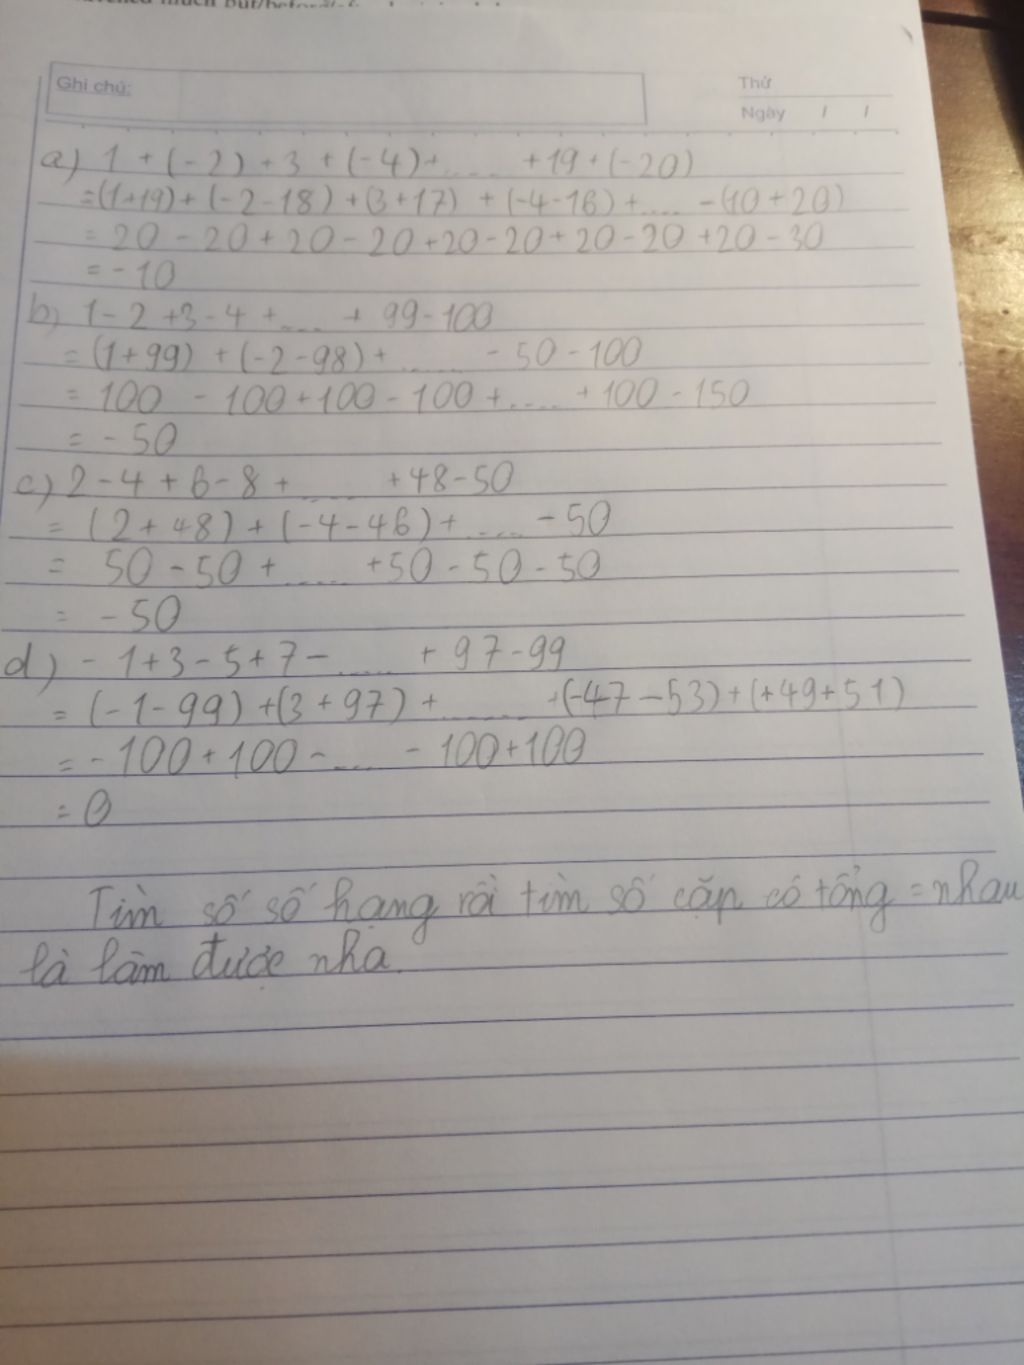 Ghi chú:
Thứ
Ngày / /
a) 1 + (-2) + 3 + (-4) + ..... + 19 + (-20)
= (1+19) + (-2-18) + (3+17) + (-4-16) + .... - (10+20)
= 20 - 20 + 20 - 20 + 20 - 20 + 20 - 20 + 20 - 30
= -10
b) 1 - 2 + 3 - 4 + .... + 99 - 100
= (1+99) + (-2-98) + ...... - 50 - 100
= 100 - 100 + 100 - 100 + ..... + 100 - 150
= -50
c) 2 - 4 + 6 - 8 + ..... + 48 - 50
= (2+48) + (-4-46) + ..... - 50
= 50 - 50 + ..... + 50 - 50 - 50
= -50
d) - 1 + 3 - 5 + 7 - ..... + 97 - 99
= (-1-99) + (3+97) + ...... + (-47-53) + (+49+51)
= -100 + 100 - .... - 100 + 100
= 0
Tìm số số hạng rồi tìm số cặp có tổng = nhau
là làm được nha.